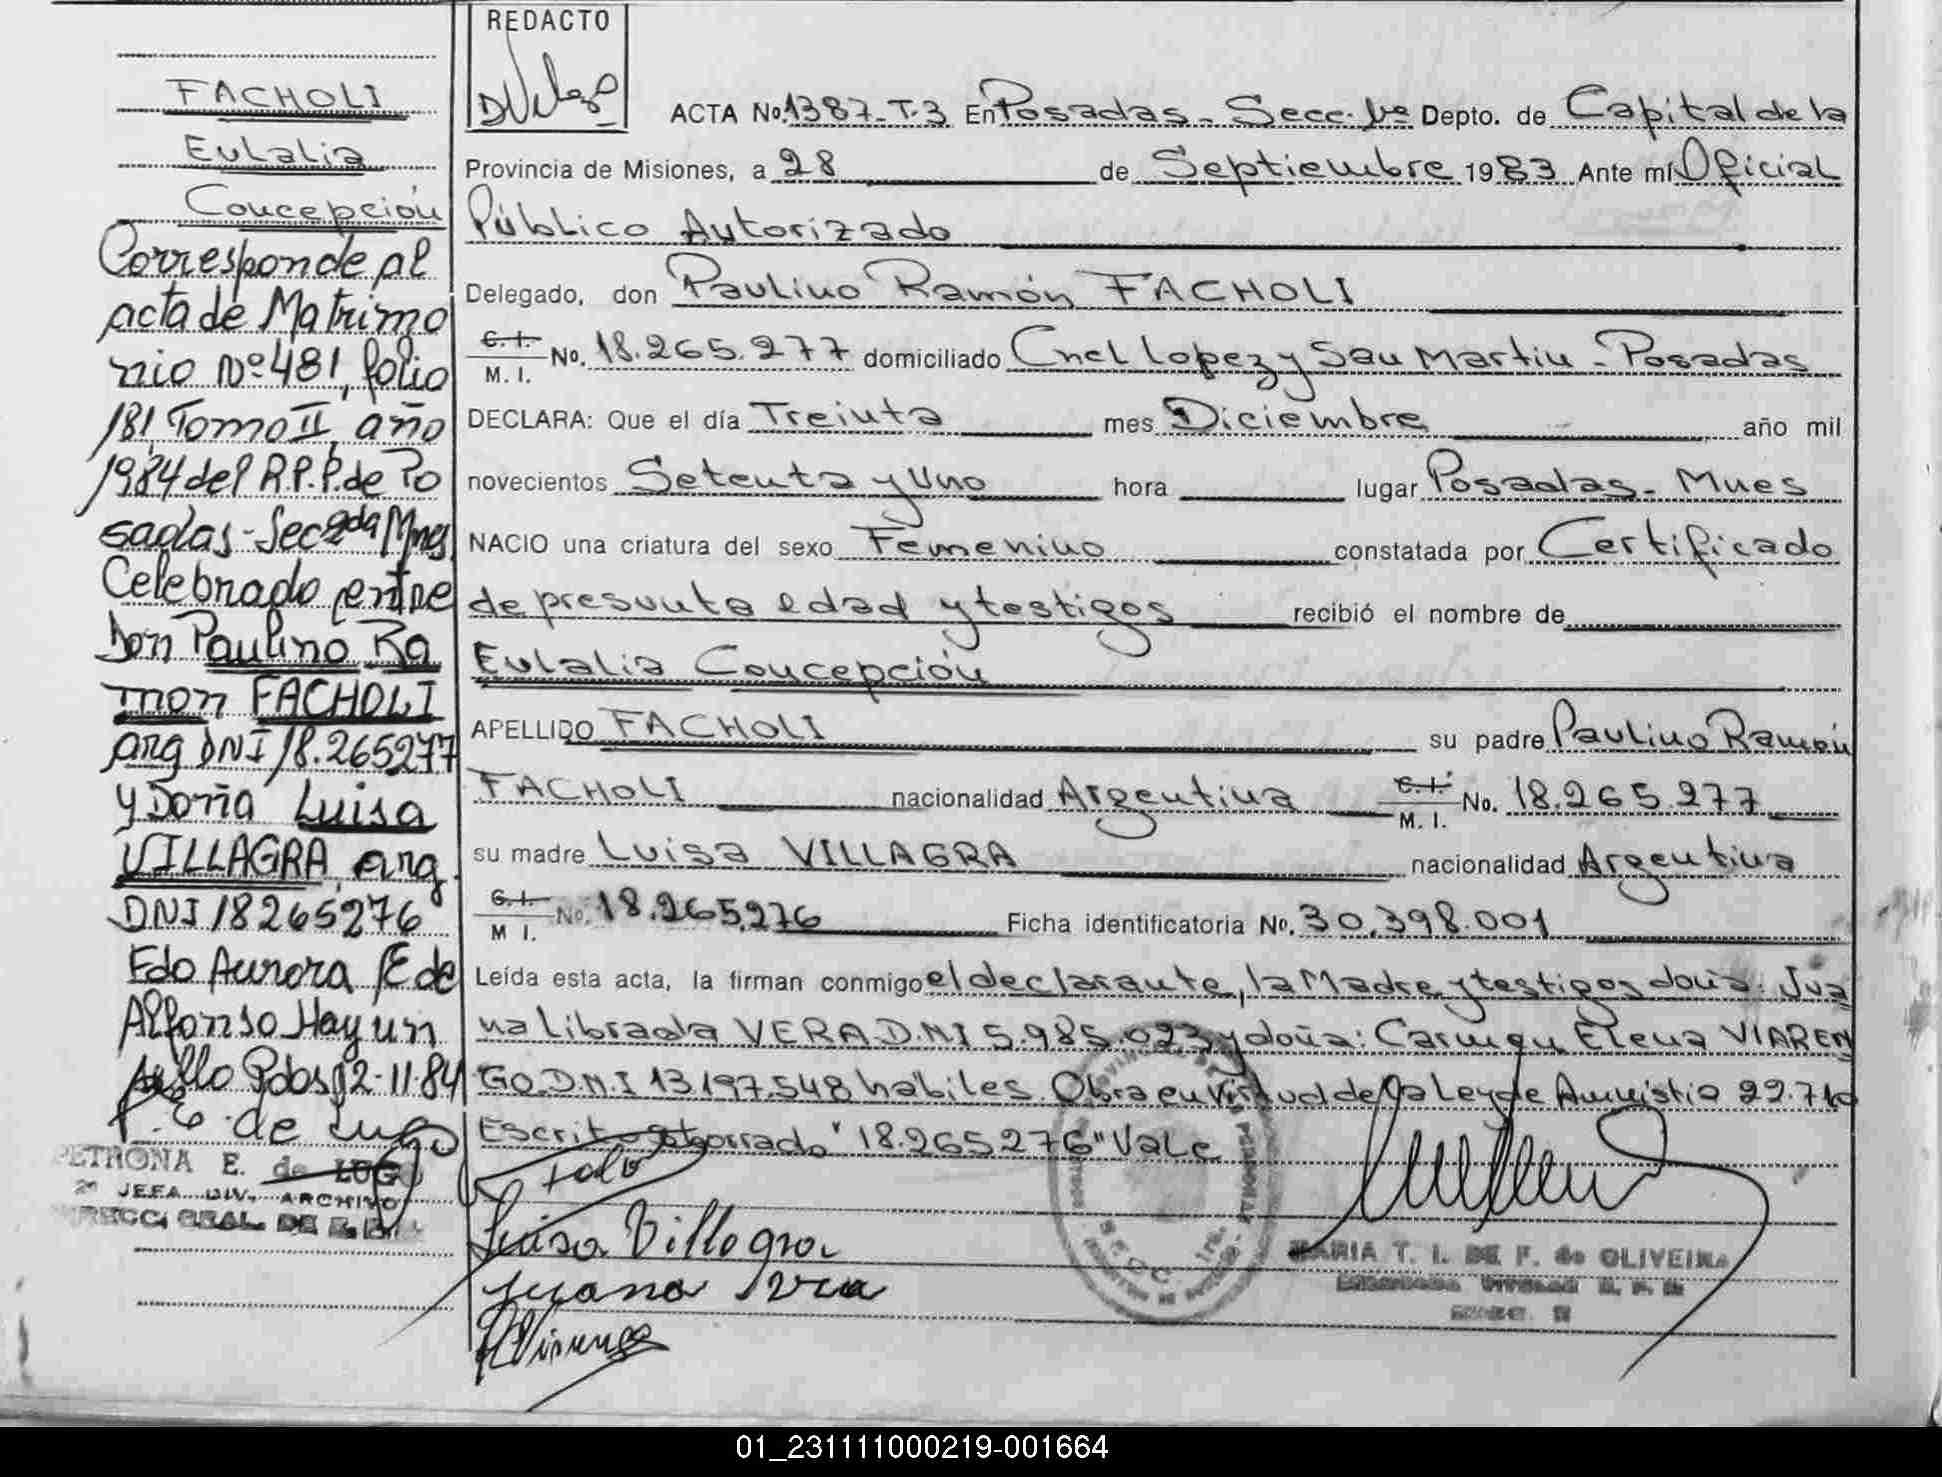 FACHOLI
Eulalia
Concepción
Corresponde al
acta de Matrimo
nio Nº 481, folio
181 Tomo II, año
1984 del R.P.P. de Po
sadas - Sec 2da Mnes
Celebrado entre
Don Paulino Ra
mon FACHOLI
arg DNI 18.265277
y Doña Luisa
VILLAGRA, arg.
DNI 18265276
Fdo Aurora E de
Alfonso Hay un
sello Pdos 12-11-84
P. E. de Lugo
PETRONA E. de LUGO
2ª JEFA DIV. ARCHIVO
DIRECC. GRAL. DE
REDACTO
ACTA No. 1387-T.3 En Posadas - Secc. 1ª Depto. de Capital de la
Provincia de Misiones, a 28 de Septiembre 1983 Ante mí Oficial
Público Autorizado
Delegado, don Paulino Ramón FACHOLI
C.I. M.I. No. 18.265.277 domiciliado Cnel Lopez y San Martin - Posadas
DECLARA: Que el día Treinta mes Diciembre año mil
novecientos Setenta y Uno hora lugar Posadas - Mnes
NACIO una criatura del sexo Femenino constatada por Certificado
de presunta edad y testigos recibió el nombre de
Eulalia Concepción
APELLIDO FACHOLI su padre Paulino Ramón
FACHOLI nacionalidad Argentina C.I. M.I. No. 18.265.277
su madre Luisa VILLAGRA nacionalidad Argentina
C.I. M I. No. 18.265.276 Ficha identificatoria No. 30.398.001
Leída esta acta, la firman conmigo el declarante, la Madre y testigos doña: Jua
na Librada VERA D.N.I 5.985.023 y doña: Carmen Elena VIAREN
GO. D.N.I 13.197.548 habiles. Obra en virtud de la Ley de Amnistia 22.710
Escrito s/borrado "18.265.276" Vale
Luisa Villagra
Juana Vera
MARIA T. I. DE F. de OLIVEIRA
01_231111000219-001664